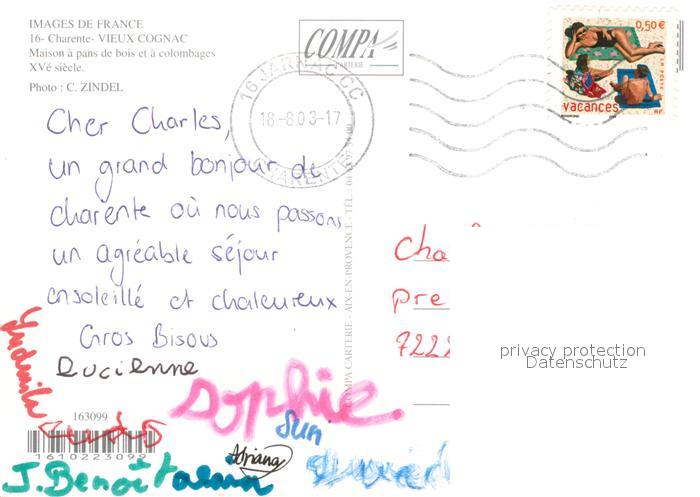 IMAGES DE FRANCE
16- Charente- VIEUX COGNAC
Maison à pans de bois et à colombages
XVé siècle.
Photo : C. ZINDEL
COMPA
CARTERIE
16 JARNAC CC
18-8 03-17
CHARENTE
0,50 €
LA POSTE
vacances
RF
Cher Charles,
un grand bonjour de
charente où nous passons
un agréable séjour
ensoleillé et chaleureux
Gros Bisous
Lucienne
COMPA CARTERIE - AIX-EN-PROVENCE - TÉL.
Cha
Pre
7222
privacy protection
Datenschutz
Sophie
Sun
Adriana
163099
1610223099
J. Benoît